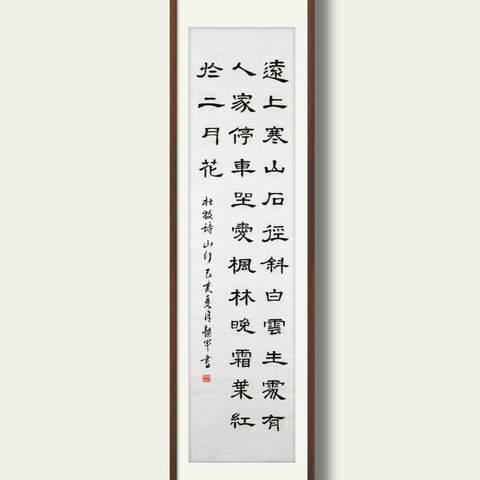 遠上寒山石徑斜白雲生處有
人家停車坐愛楓林晚霜葉紅
於二月花
杜牧詩山行己亥夏月龍軍書